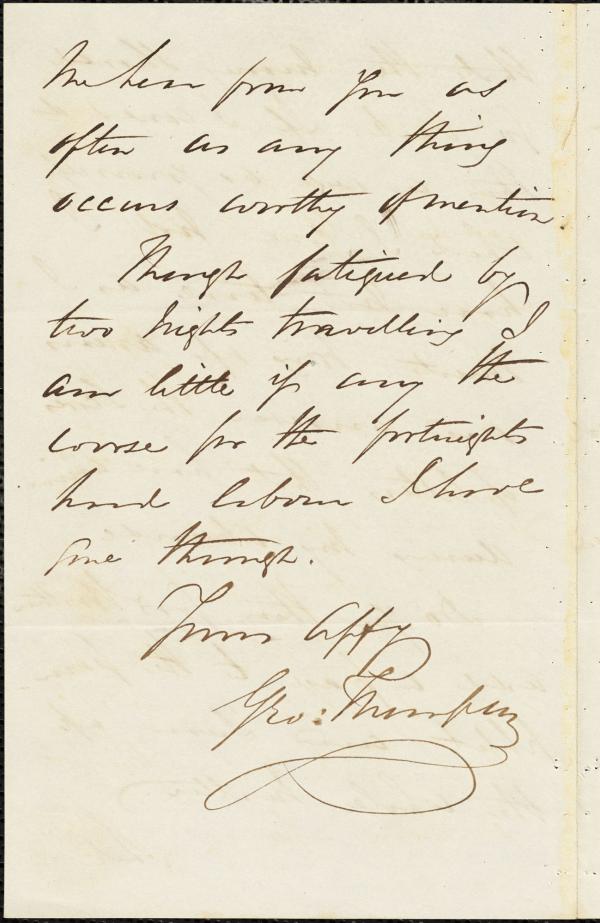 me hear from you as
often as any thing
occurs worthy of mention.
Though fatigued by
two nights travelling I
am little if any the
worse for the fortnights
hard labour I have
gone through.
Yours Affy
Geo: Thompson